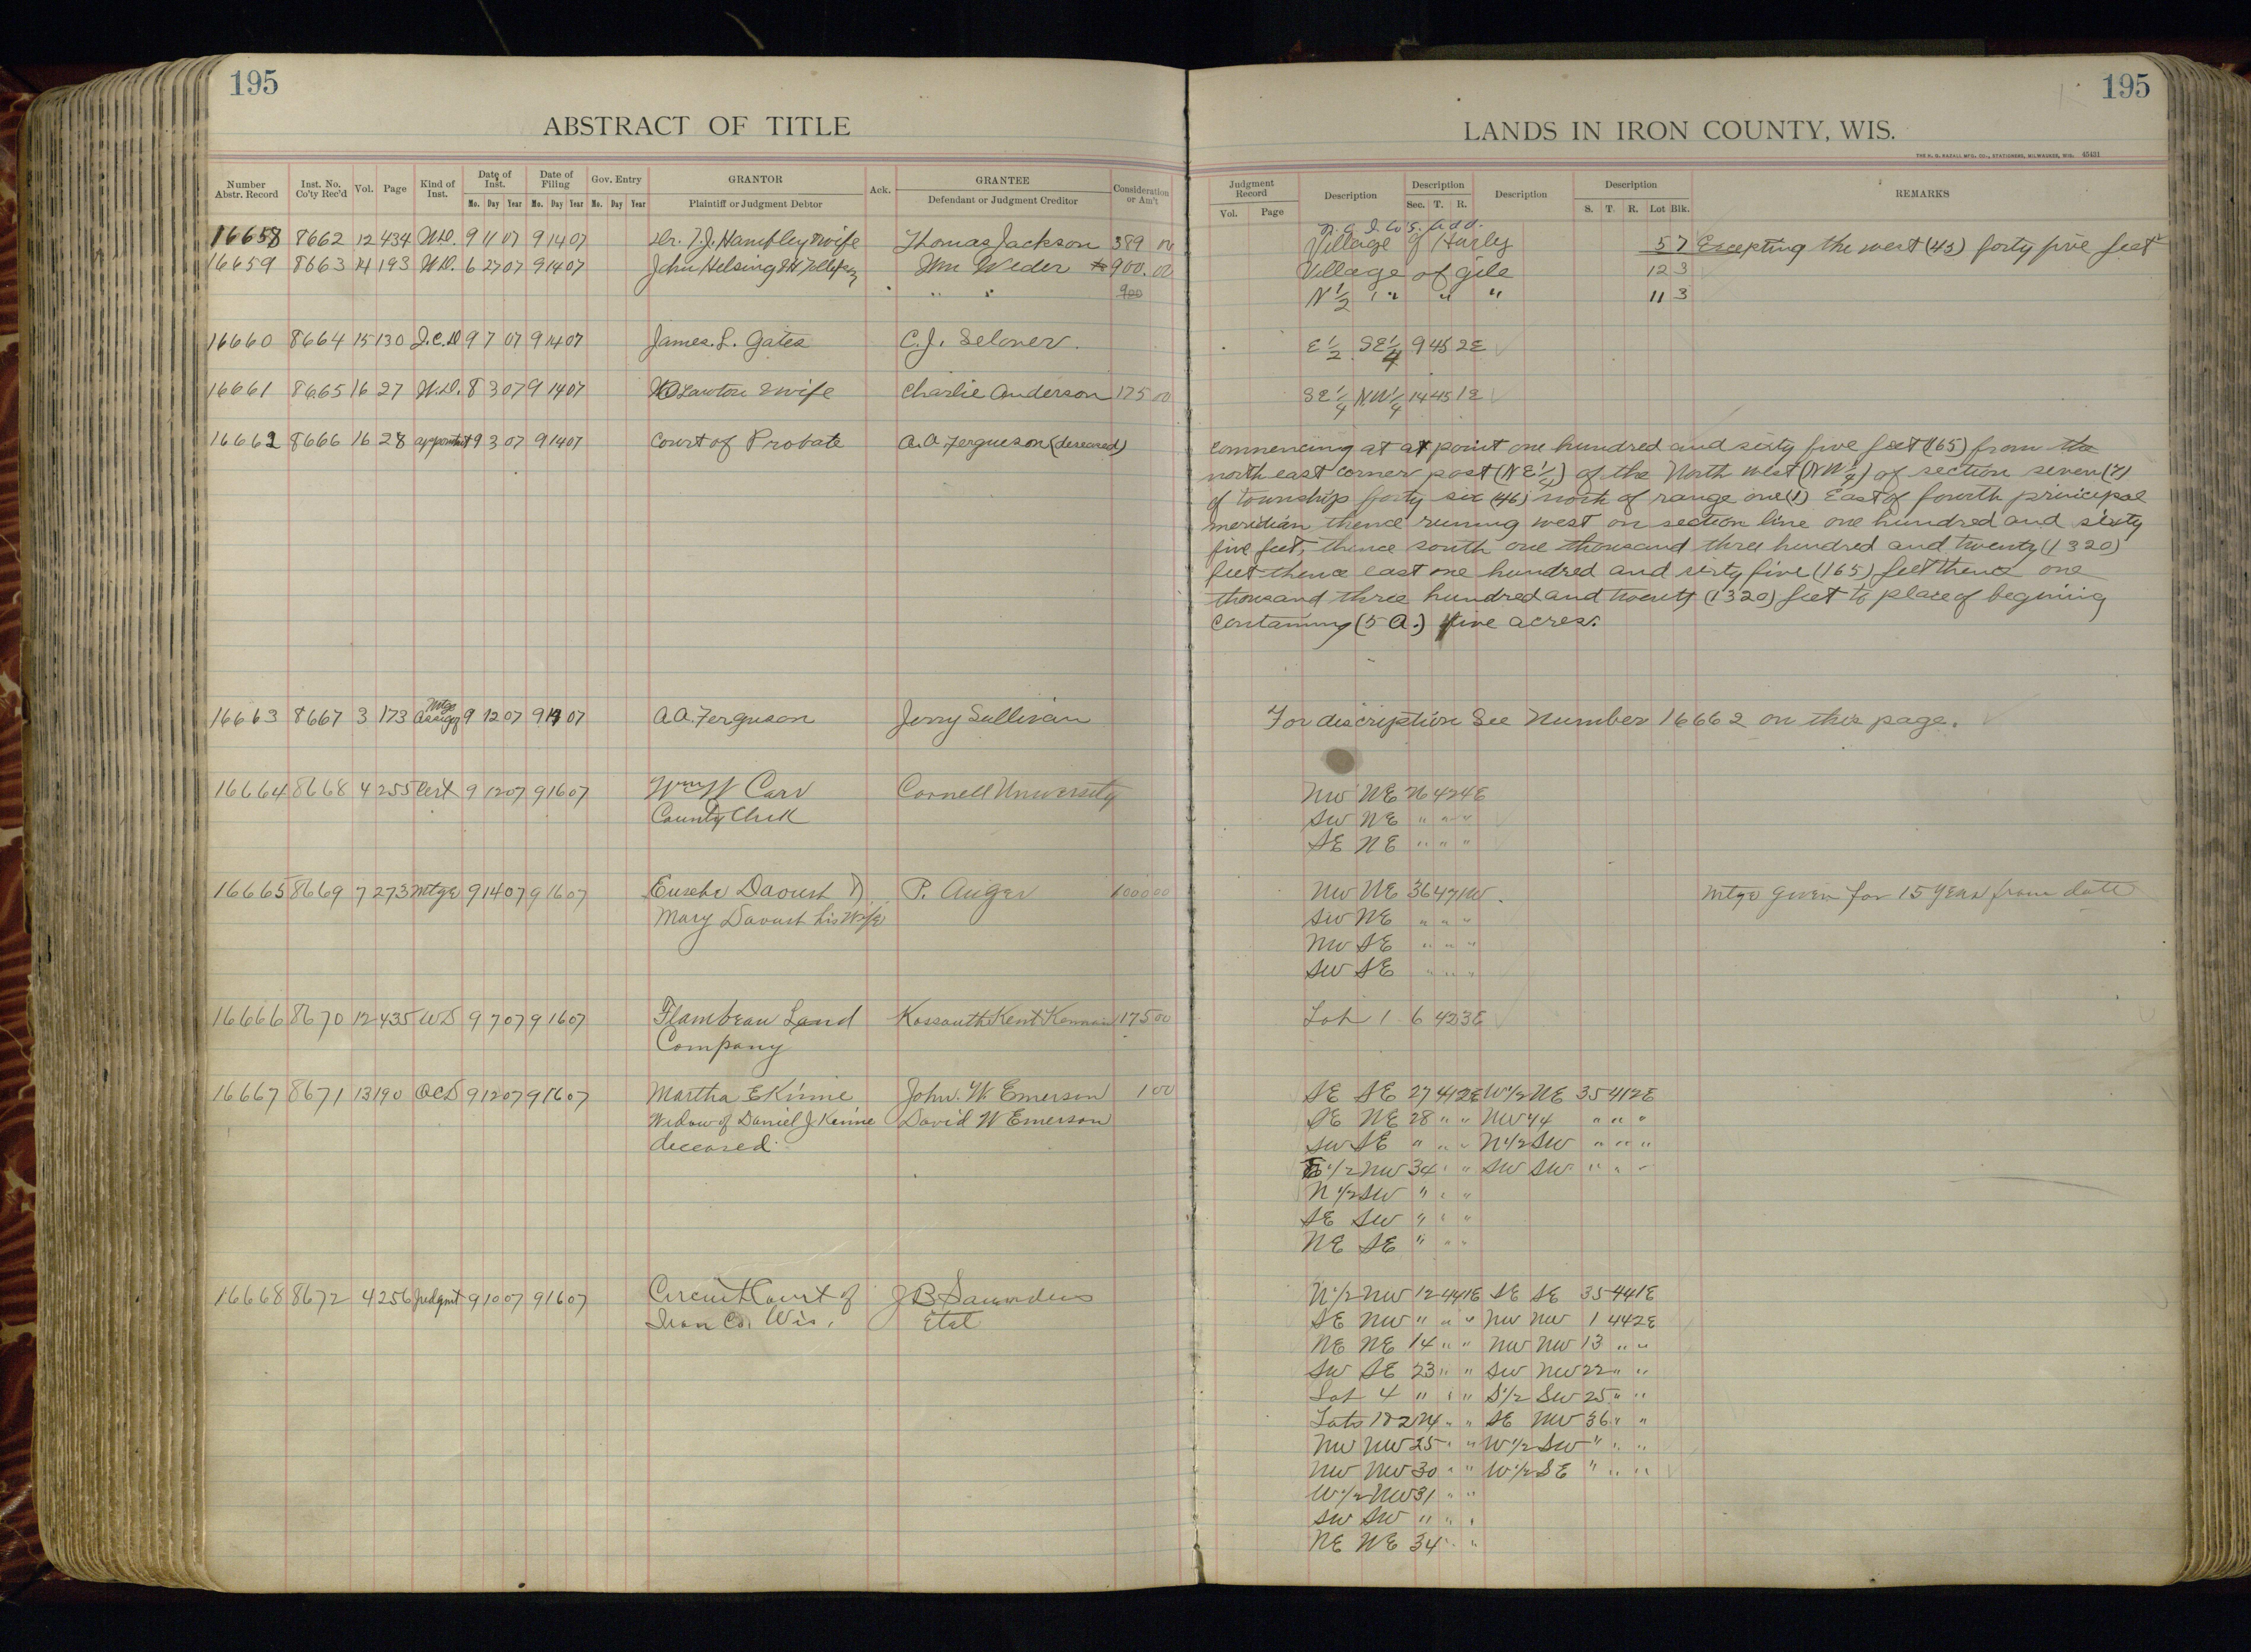 195
ABSTRACT OF TITLE
Number Abstr. Record Inst. No. Co'ty Rec'd Vol. Page Kind of Inst. Date of Inst. Date of Filing Gov. Entry GRANTOR Ack. GRANTEE Consideration or Am't
Mo. Day Year Mo. Day Year Mo. Day Year Plaintiff or Judgment Debtor Defendant or Judgment Creditor
16658 8662 12 434 W.D. 9 11 07 9 14 07 Dr. T.J. Hambley & wife Thomas Jackson 389 00
16659 8663 14 193 W.D. 6 27 07 9 14 07 John Helsing Wm Weder 900.00
" " 900
16660 8664 15 130 J.C.D 9 7 07 9 14 07 James. L. Gates C.J. Selover.
16661 8665 16 27 W.D. 8 3 07 9 14 07 Lawton & wife Charlie Anderson 175 00
16662 8666 16 28 9 3 07 9 14 07 Court of Probate A.A. Fergueson (deseased)
16663 8667 3 173 Mtge Assig 9 12 07 9 14 07 A.A. Ferguson Jerry Sullivan
16664 8668 4 255 Cert 9 12 07 9 16 07 Wm W Carr Cornell University
County Clerk
16665 8669 7 273 Mtge 9 14 07 9 16 07 Eusebe Daoust & P. Auger 1000 00
Mary Daoust his Wife
16666 8670 12 435 WD 9 7 07 9 16 07 Flambeau Land Kossouth Kent Kennan 175 00
Company
16667 8671 13 190 QCD 9 12 07 9 16 07 Martha E Kinne John. W. Emerson 1 00
Widow of Daniel J Kinne David W Emerson
deceased
16668 8672 4 256 Judgmt 9 10 07 9 16 07 Circuit Court of J B Saunders
Iron Co. Wis. Etal
195
LANDS IN IRON COUNTY, WIS.
THE H. G. RAZALL MFG. CO., STATIONERS, MILWAUKEE, WIS. 45431
Judgment Record Description Description Description Description REMARKS
Vol. Page Sec. T. R. S. T. R. Lot Blk.
Village of Hurley 5 7 Excepting the west (45) forty five feet
Village of Gile 12 3
N 1/2 " " " 11 3
E 1/2 SE 1/4 9 45 2E
SE 1/4 NW 1/4 14 45 1E
Commencing at at point one hundred and sixty five feet (165) from the
north east corner post (NE 1/4) of the North west (NW 1/4) of section seven (7)
of township forty six (46) north of range one (1) East of fourth principal
meridian thence runing west on section line one hundred and sixty
five feet, thence south one thousand three hundred and twenty (1320)
feet thence east one hundred and sixty five (165) feet thence one
thousand three hundred and twenty (1320) feet to place of begining
Containing (5 A.) five acres.
For discription See Number 16662 on this page.
NW NE 26 42 4E
SW NE " " "
SE NE " " "
NW NE 36 47 1W. Mtge given for 15 years from date
SW NE " " "
NW SE " " "
SW SE " " "
Lot 1 6 42 3E
SE SE 27 41 2E W 1/2 NE 35 41 2E
SE NE 28 " " NW 1/4 " " "
SW SE " " " N 1/2 SW " " "
E 1/2 NW 34 " " SW SW " " "
N 1/2 SW " " "
SE SW " " "
NE SE " " "
N 1/2 NW 12 44 1E SE SE 35 44 1E
SE NW " " " NW NW 1 44 2E
NE NE 14 " " NW NW 13 " "
SW SE 23 " " SW NW 22 " "
Lot 4 " " " S 1/2 SW 25 " "
Lots 1 & 2 24 " " SE NW 36 " "
NW NW 25 " " W 1/2 SW " " "
NW NW 30 " " W 1/2 SE " " "
W 1/2 NW 31 " "
SW SW " " "
NE NE 34 " "